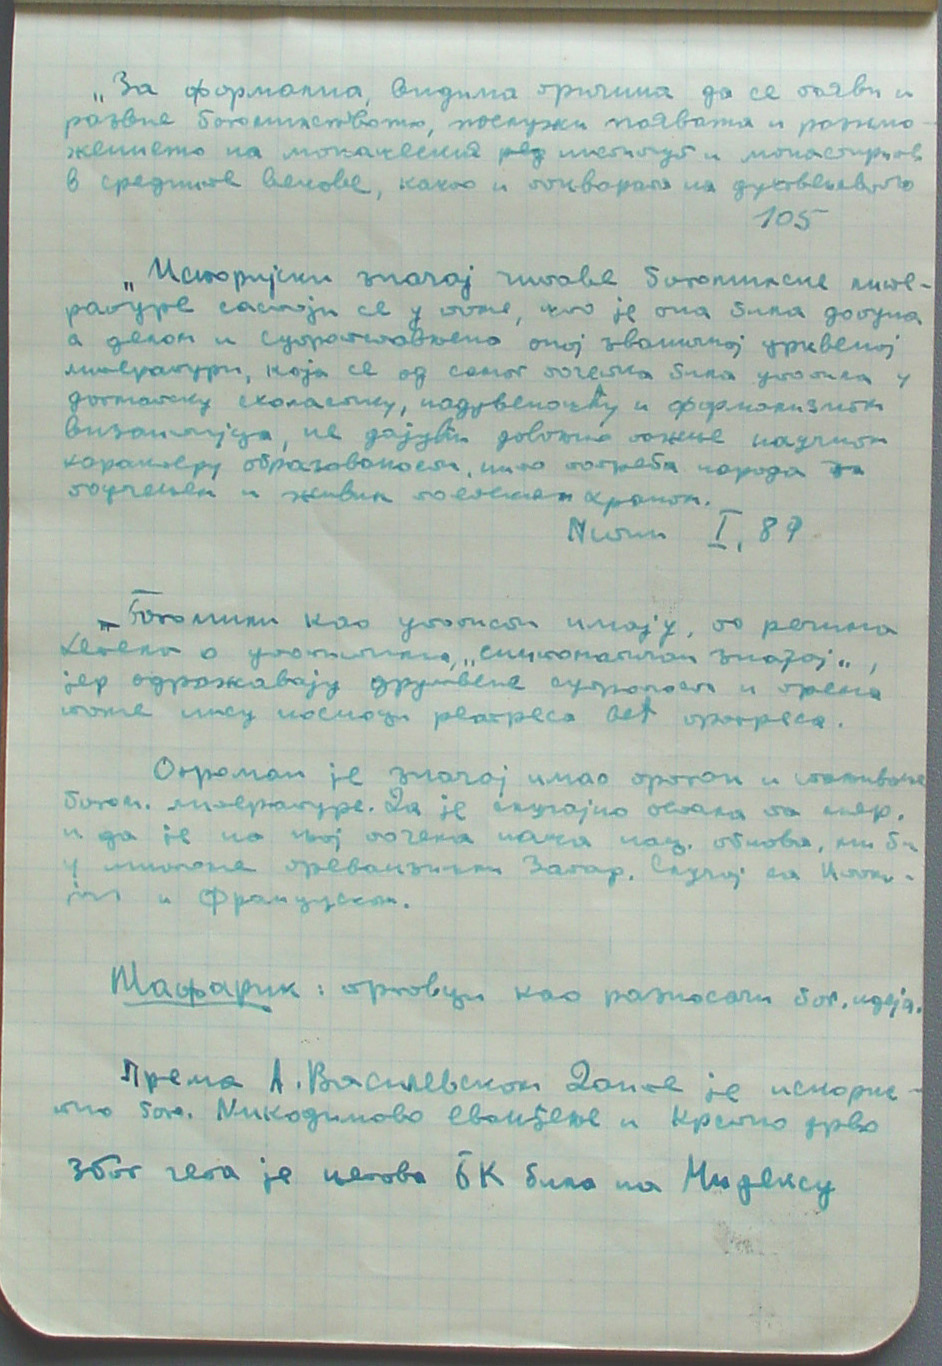 „За формална, видима причина да се появи и
развие богомилството, послужи появата и размно-
жението на монашеския ред институт и монастирите
в средните векове, както и покварата на духовенството
105
„Историјски значај читаве богомилске лите-
ратуре састоји се у томе, што је она била допуна
а делом и супротстављена оној званичној црквеној
литератури, која се од самог почетка била утопила у
догматску схоластику, надувеношћу и формализмом
византијца, не дајући довољно пажње научном
карактеру образованости, нити потреби народа за
поучењем и живим поетским храном.
I, 89
„Богомили као утописти имају, по речима
о утопистима, „симптоматичан значај“,
јер одражавају друштвене супротности и према
томе нису носиоци регреса већ прогреса.
Огроман је значај имао прогон и спаљивање
богом. литературе. Да је случајно остала та књиж.
и да је на њој почела наша нац. обнова, ми би
у многоме превазишли Запад. Случај са Итали-
јом и Француском.
Шафарик: трговци као разносачи бог. идеја.
Према А. Васиљевском Данте је искорис-
тио бог. Никодимово еванђеље и Крстно дрво
Због чега је његова БК била на Индексу